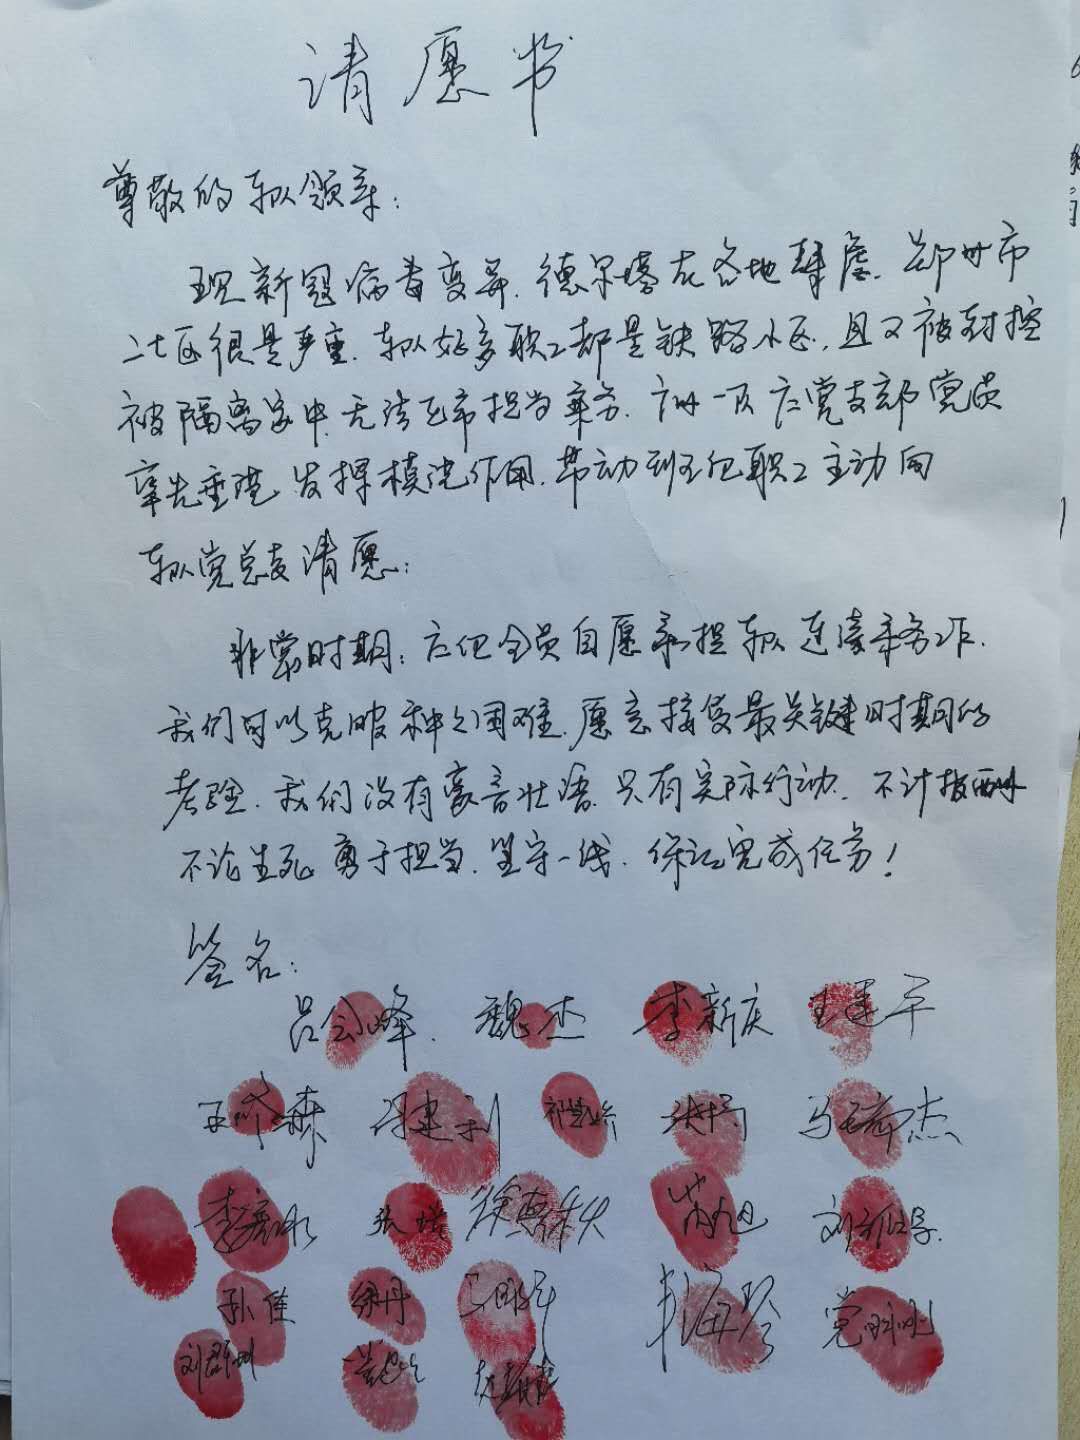 请愿书
尊敬的车队领导:
现新冠病毒变异.德尔塔在各地肆虐.郑州市
二七区很是严重.车队好多职工都是铁路小区,且又被封控
被隔离家中.无法正常担当乘务.广州一队六党支部党员
率先垂范.发挥模范作用.带动班组职工主动向
车队党总支请愿:
非常时期:六组全员自愿承担车队连续乘务工作.
我们可以克服种种困难.愿意接受最关键时期的
考验.我们没有豪言壮语.只有实际行动.不计报酬
不论生死.勇于担当.坚守一线.保证完成任务!
签名:
吕会峰.魏杰 李新庆 王建军
冯建利 马瑞杰
张 芮旭 刘
孙佳 徐丹 海琴 党
刘群